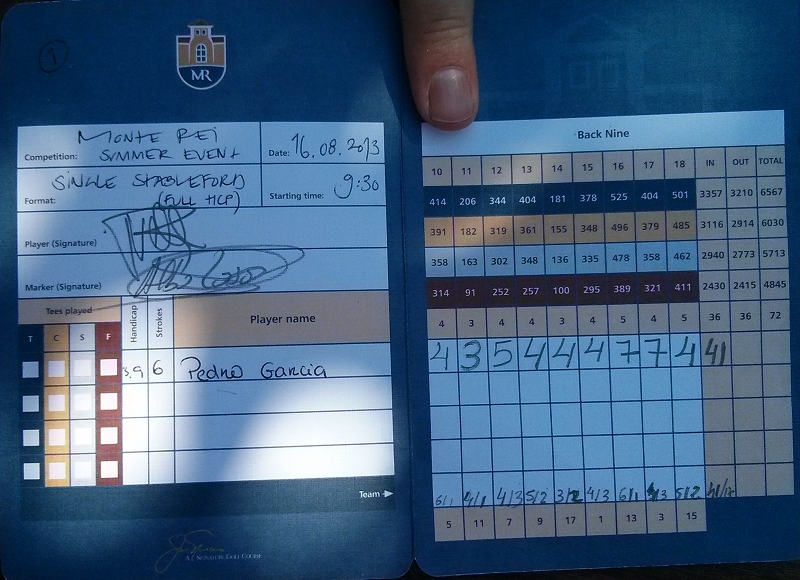 1
MR
MONTE REI
Competition: SUMMER EVENT
Date: 16.08.2013
SINGLE STABLEFORD
Format: (FULL HCP)
Starting time: 9:30
Player (Signature)
Marker (Signature)
Tees played
T C S F Handicap Strokes Player name
5.9 6 Pedro Garcia
Team
Back Nine
10 11 12 13 14 15 16 17 18 IN OUT TOTAL
414 206 344 404 181 378 525 404 501 3357 3210 6567
391 182 319 361 155 348 496 379 485 3116 2914 6030
358 163 302 348 136 335 478 358 462 2940 2773 5713
314 91 252 257 100 295 389 321 411 2430 2415 4845
4 3 4 4 3 4 5 4 5 36 36 72
4 3 5 4 4 4 7 7 4 41
6/1 4/1 4/3 5/2 3/2 4/3 6/1 5/2
5 11 7 9 17 1 13 3 15